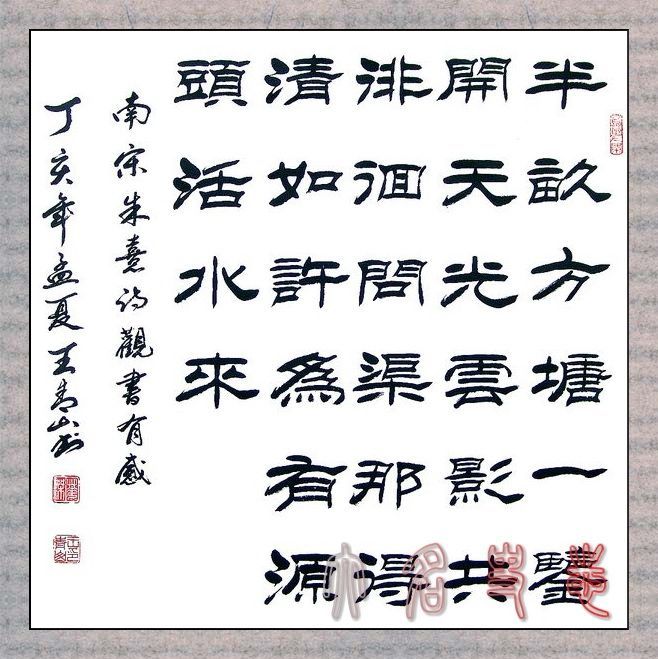 半畝方塘一鑒
開天光雲影共
徘徊問渠那得
清如許為有源
頭活水來
南宋朱熹詩觀書有感
丁亥年孟夏王青山书